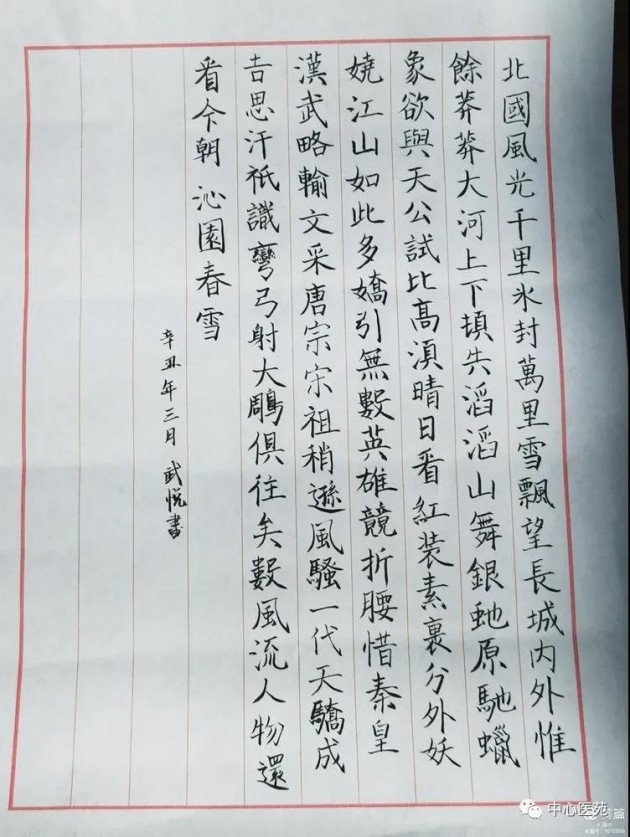 北國風光千里氷封萬里雪飄望長城内外惟
餘莽莽大河上下頓失滔滔山舞銀虵原馳蠟
象欲與天公試比髙須晴日看紅装素裹分外妖
嬈江山如此多嬌引無數英雄競折腰惜秦皇
漢武略輸文采唐宗宋祖稍遜風騷一代天驕成
吉思汗祇識彎弓射大鵰俱往矣數風流人物還
看今朝 沁園春雪
辛丑年三月 武悦書
中心医苑